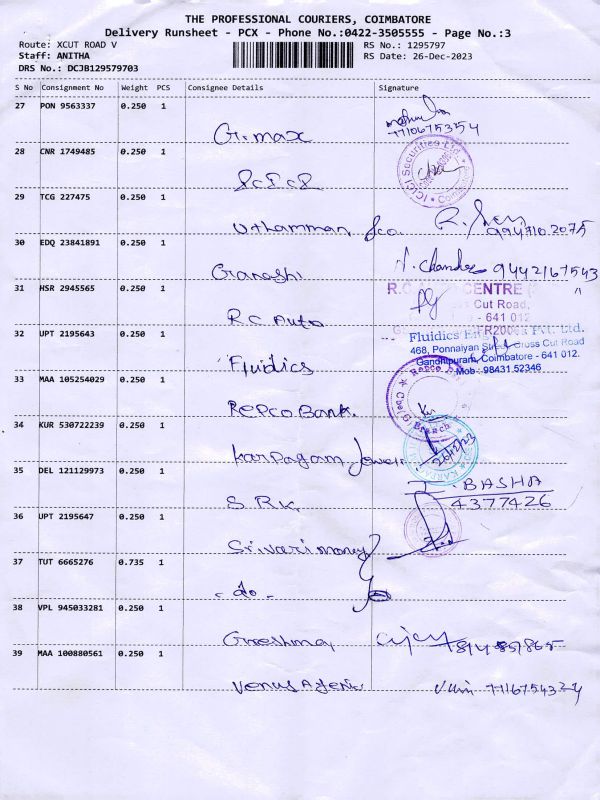 THE PROFESSIONAL COURIERS, COIMBATORE
Delivery Runsheet - PCX - Phone No.:0422-3505555 - Page No.:3
Route: XCUT ROAD V RS No.: 1295797
Staff: ANITHA RS Date: 26-Dec-2023
DRS No.: DCJB129579703
S No Consignment No Weight PCS Consignee Details Signature
27 PON 9563337 0.250 1
G.max 7710675354
28 CNR 1749485 0.250 1
ICICI Securities Ltd.
29 TCG 227475 0.250 1
Uthamman &co. 9947102075
30 EDQ 23841891 0.250 1
Ganashi N. Chandra 9442167543
31 HSR 2945565 0.250 1
R.C CENTRE
Cut Road,
- 641 012
R.C Auto
32 UPT 2195643 0.250 1
Fluidics Pvt. Ltd.
468, Ponnaiyan Street, Cross Cut Road
Gandhipuram, Coimbatore - 641 012.
Mob: 98431 52346
Fluidics
33 MAA 105254029 0.250 1
Repco
Branch
Repco Bank.
34 KUR 530722239 0.250 1
Karpagam 26/12/23
35 DEL 121129973 0.250 1
BASHA
S.R.K. 4377426
36 UPT 2195647 0.250 1
Srivari money
37 TUT 6665276 0.735 1
- do -
38 VPL 945033281 0.250 1
Greeshma
39 MAA 100880561 0.250 1
Venus